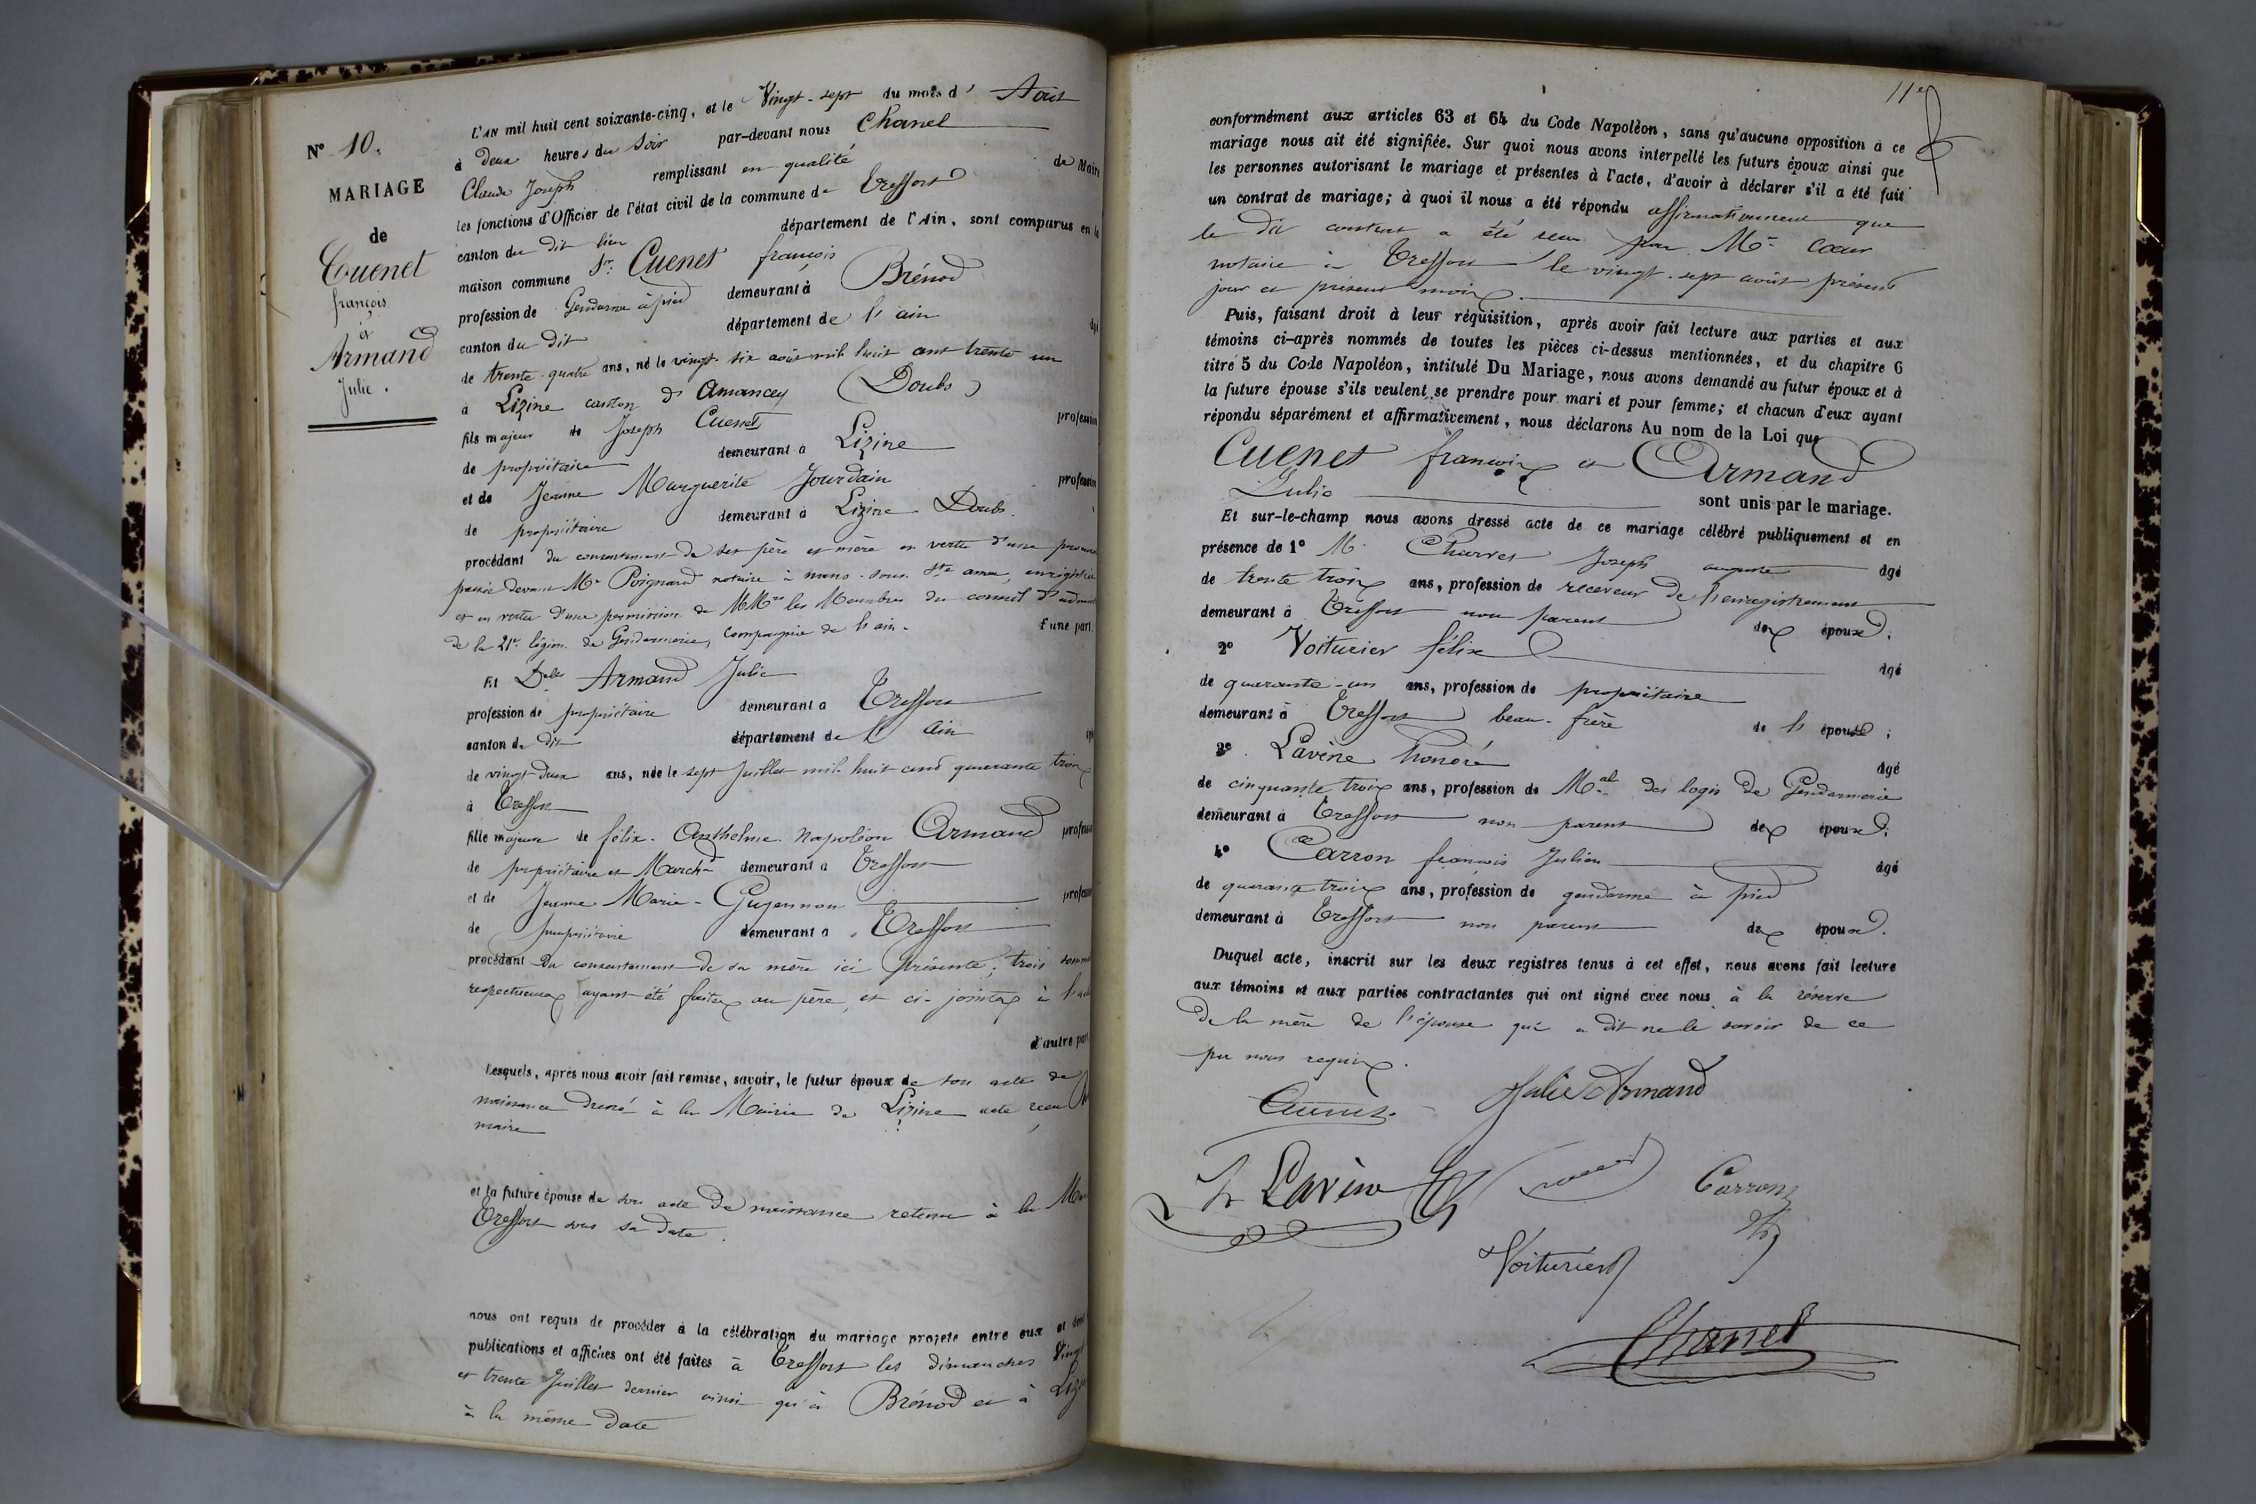 N° 10.
MARIAGE
de
Cuenet
françois
&
Armand
Julie.
L'AN mil huit cent soixante-cinq, et le Vingt-sept du mois d'Août
à deux heures du Soir par-devant nous Chanel
Claude Joseph remplissant en qualité de Maire
les fonctions d'Officier de l'état civil de la commune de Treffort
canton du dit lieu département de l'Ain, sont comparus en la
maison commune Sr. Cuenet françois
profession de Gendarme à pied demeurant à Brénod
canton du dit département de l'ain
de trente-quatre ans, né le vingt-six août mil huit cent trente un
à Lizine canton d'Amancey (Doubs)
fils majeur de Joseph Cuenet profession
de propriétaire demeurant à Lizine
et de Jeanne Marguerite Jourdain profession
de propriétaire demeurant à Lizine Doubs.
procédant du consentement de ses père et mère en vertu d'une
passée devant Me Poignand notaire à nans-sous-Ste anne, enregistrée
et en vertu d'une permission de MMrs les Membres du conseil
de la 21e légion de Gendarmerie, compagnie de l'ain. d'une part.
Et Delle Armand Julie
profession de propriétaire demeurant à Treffort
canton du dit département de l'Ain
de vingt deux ans, née le sept Juillet mil huit cent quarante trois
à Treffort
fille majeure de félix-Anthelme-Napoléon Armand
de propriétaire et March demeurant à Treffort
et de Jeanne-Marie-Guyennon
de propriétaire demeurant à Treffort
procédant du consentement de sa mère ici présente; trois
respectueux ayant été faites au père, et ci-jointes à
d'autre part
Lesquels, après nous avoir fait remise, savoir, le futur époux de son acte de
naissance dressé à la Mairie de Lizine acte reçu
maire
et la future épouse de son acte de naissance retenu à la
Treffort sous sa date.
nous ont requis de procéder à la célébration du mariage projeté entre eux et dont
publications et affiches ont été faites à Treffort les dimanches vingt
et trente Juillet dernier ainsi qu'à Brénod et à
à la même date
11e
conformément aux articles 63 et 64 du Code Napoléon, sans qu'aucune opposition à ce
mariage nous ait été signifiée. Sur quoi nous avons interpellé les futurs époux ainsi que
les personnes autorisant le mariage et présentes à l'acte, d'avoir à déclarer s'il a été fait
un contrat de mariage; à quoi il nous a été répondu affirmativement que
le dit contrat a été reçu par Me Coeur
notaire à Treffort le vingt-sept août présent
jour et présent mois.
Puis, faisant droit à leur réquisition, après avoir fait lecture aux parties et aux
témoins ci-après nommés de toutes les pièces ci-dessus mentionnées, et du chapitre 6
titre 5 du Code Napoléon, intitulé Du Mariage, nous avons demandé au futur époux et à
la future épouse s'ils veulent se prendre pour mari et pour femme; et chacun d'eux ayant
répondu séparément et affirmativement, nous déclarons Au nom de la Loi que
Cuenet françois et Armand
Julie sont unis par le mariage.
Et sur-le-champ nous avons dressé acte de ce mariage célébré publiquement et en
présence de 1° M. Charvet Joseph auguste âgé
de trente trois ans, profession de receveur de l'enregistrement
demeurant à Treffort non parent des époux;
2° Voiturier félix âgé
de quarante-un ans, profession de propriétaire
demeurant à Treffort beau-frère de l'épouse;
3° Lavène honoré âgé
de cinquante trois ans, profession de Mal des logis de Gendarmerie
demeurant à Treffort non parent des époux;
4° Carron françois Julien âgé
de quarante trois ans, profession de gendarme à pied
demeurant à Treffort non parent des époux.
Duquel acte, inscrit sur les deux registres tenus à cet effet, nous avons fait lecture
aux témoins et aux parties contractantes qui ont signé avec nous à la réserve
de la mère de l'épouse qui a dit ne le savoir de ce
par nous requis.
Cuenet Julie Armand
Lavène Carron
Voiturier
Chanel